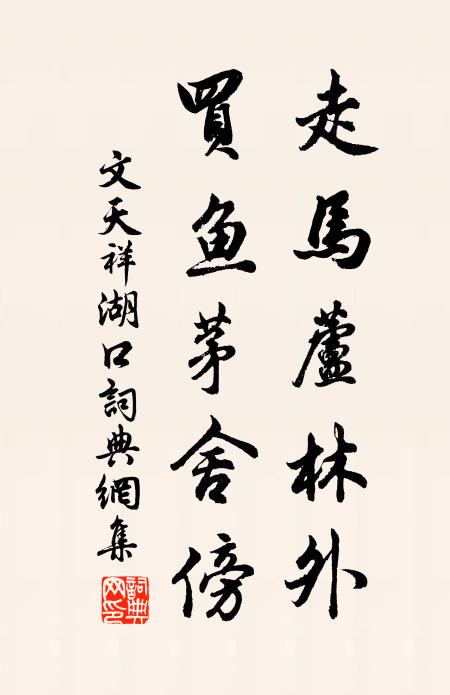 走馬蘆林外
買鱼茅舍傍
文天祥湖口詞典網集
詞典网印